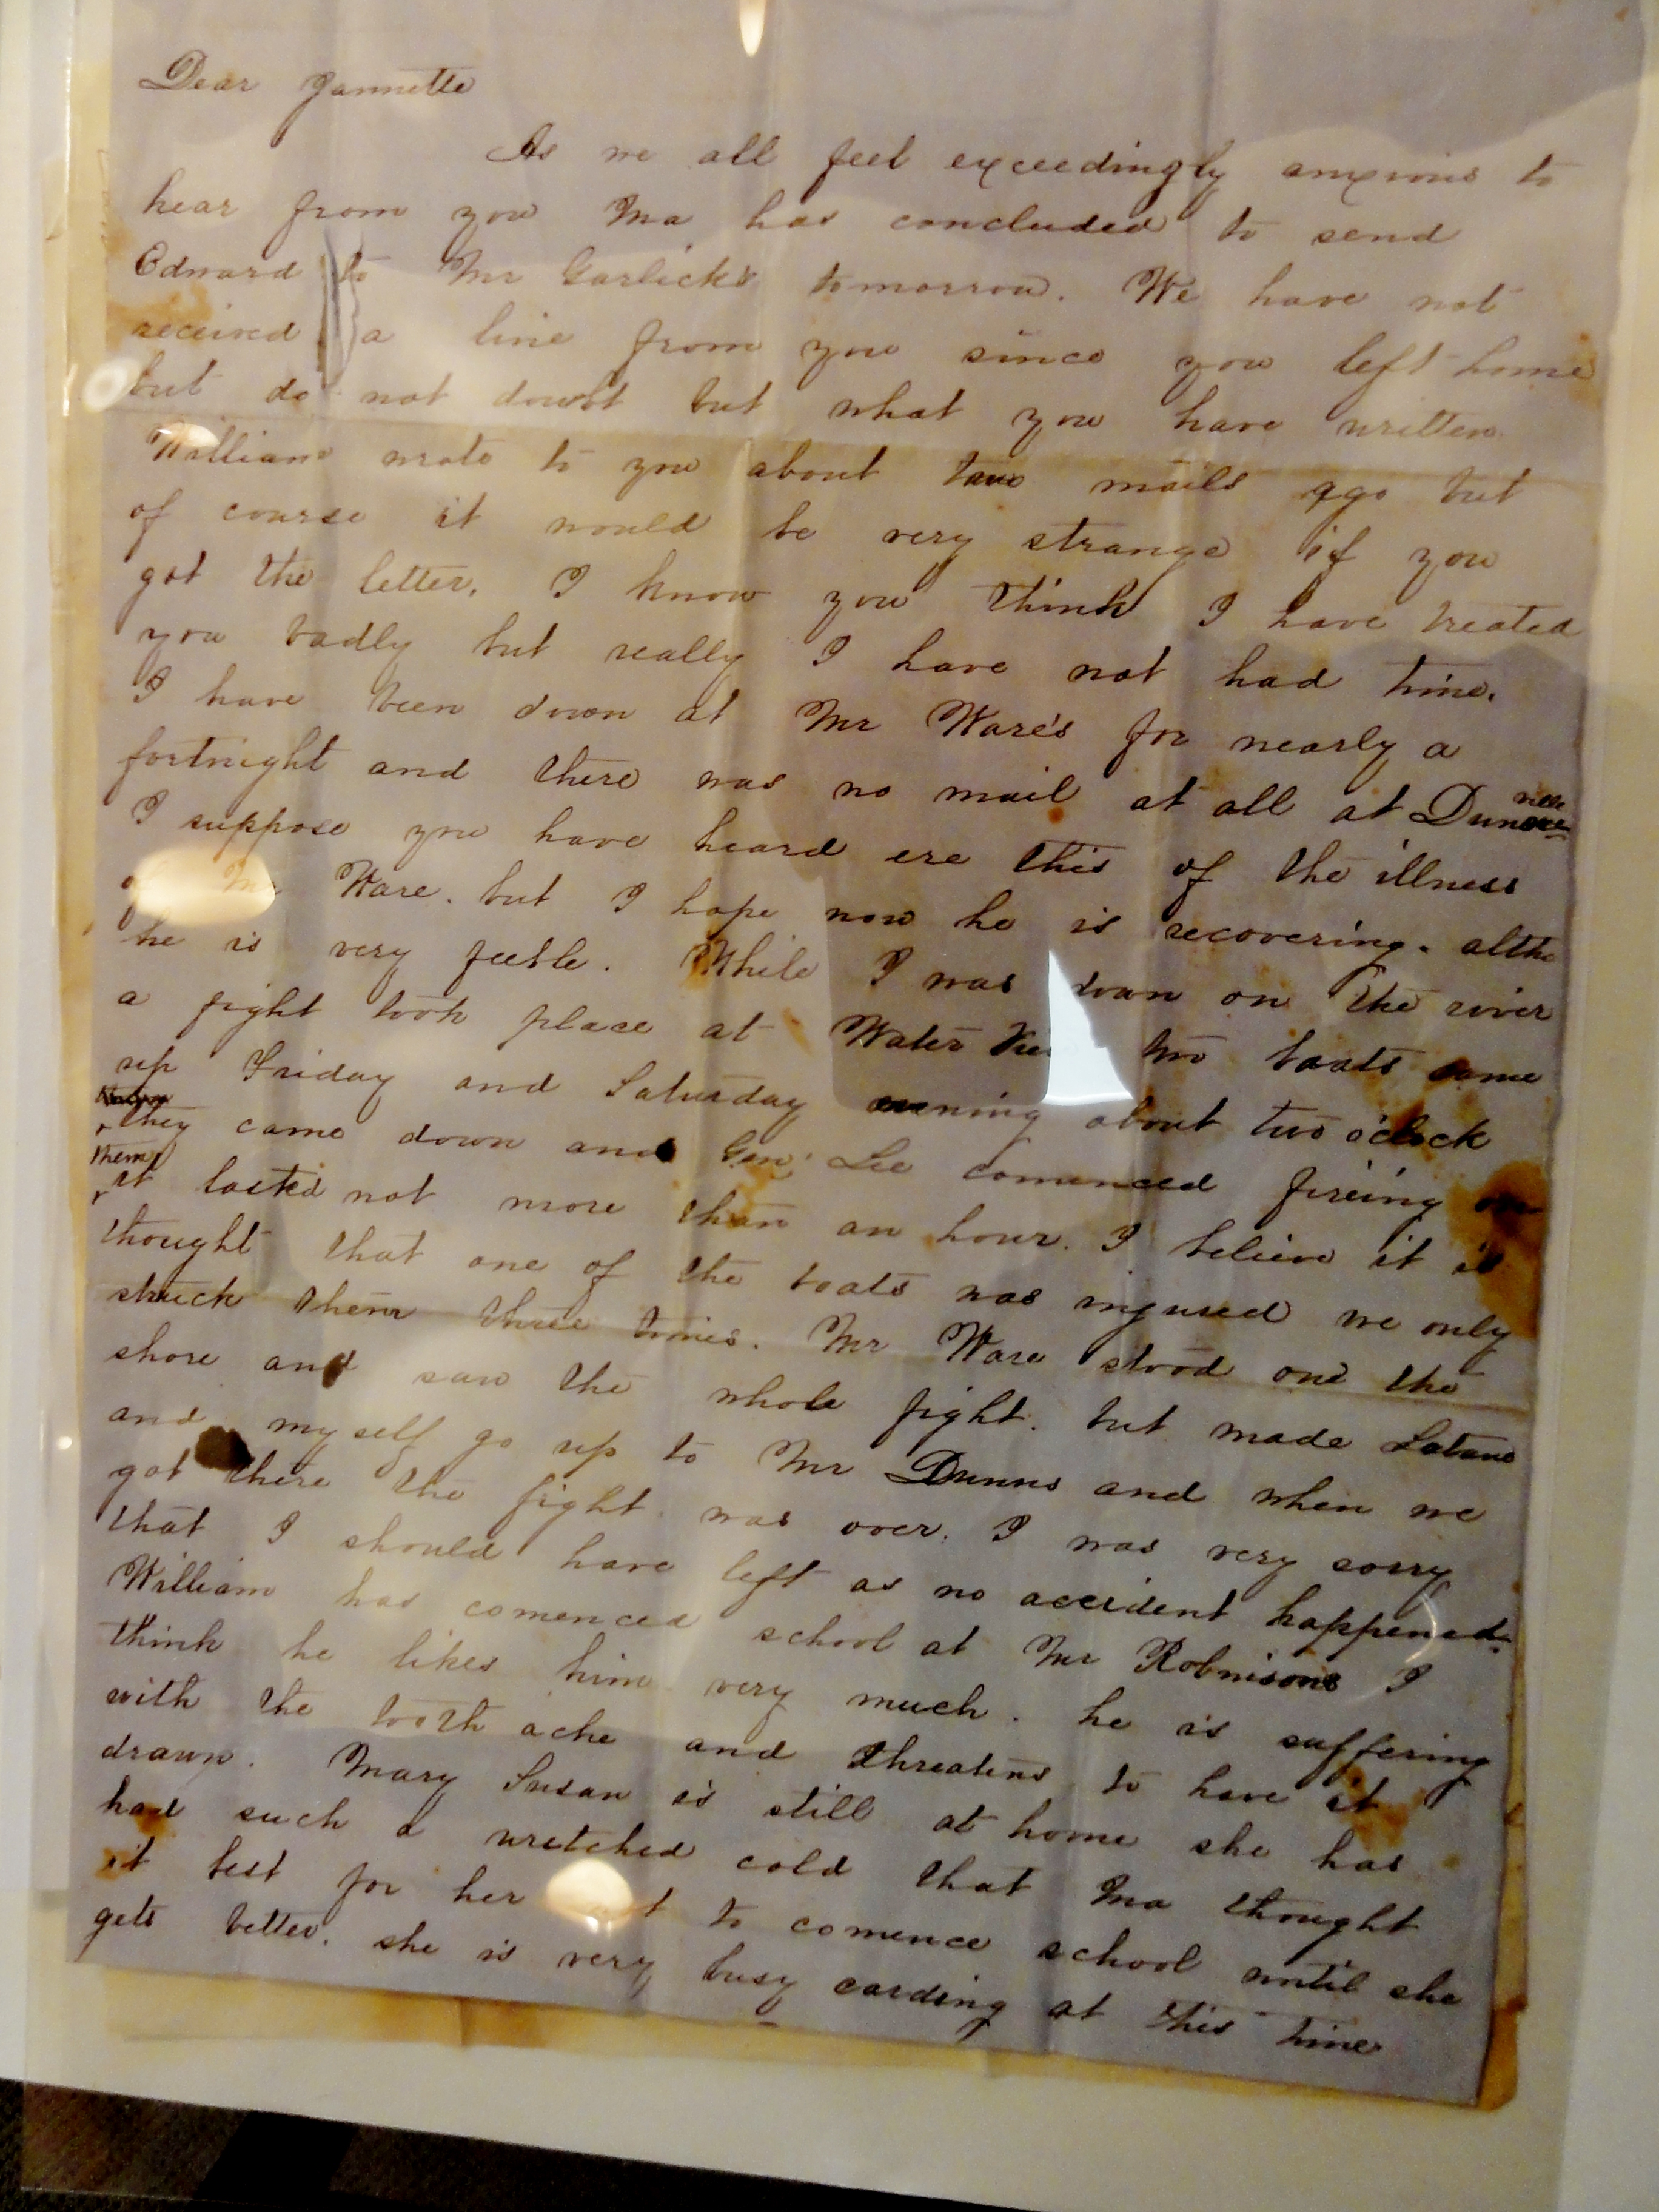 Dear Jannette
As we all feel exceedingly anxious to
hear from you Ma has concluded to send
Edward to Mr Garlick's tomorrow. We have not
received a line from you since you left home
but do not doubt but what you have written
William wrote to you about two mails ago but
of course it would be very strange if you
got the letter. I know you think I have treated
you badly but really I have not had time.
I have been down at Mr Ware's for nearly a
fortnight and there was no mail at all at
I suppose you have heard ere this of the illness
of Mr Ware. but I hope now he is recovering. altho
he is very feeble. While I was down on the river
a fight took place at Water two boats came
up Friday and Saturday evening about two o'clock
they came down and Gen. Lee comenced fireing on
them it lasted not more than an hour. I believe it is
thought that one of the boats was injured we only
struck them three times. Mr Ware stood one the
shore and saw the whole fight. but made Latane
and my self go up to Mr Dunns and when we
got there the fight was over. I was very sorry
that I should have left as no accident happened.
William has comenced school at Mr Robinsons I
think he likes him very much. he is suffering
with the tooth ache and threatens to have it
drawn. Mary Susan is still at home she has
had such a wretched cold that Ma thought
it best for her not to comence school until she
gets better. she is very busy carding at this time